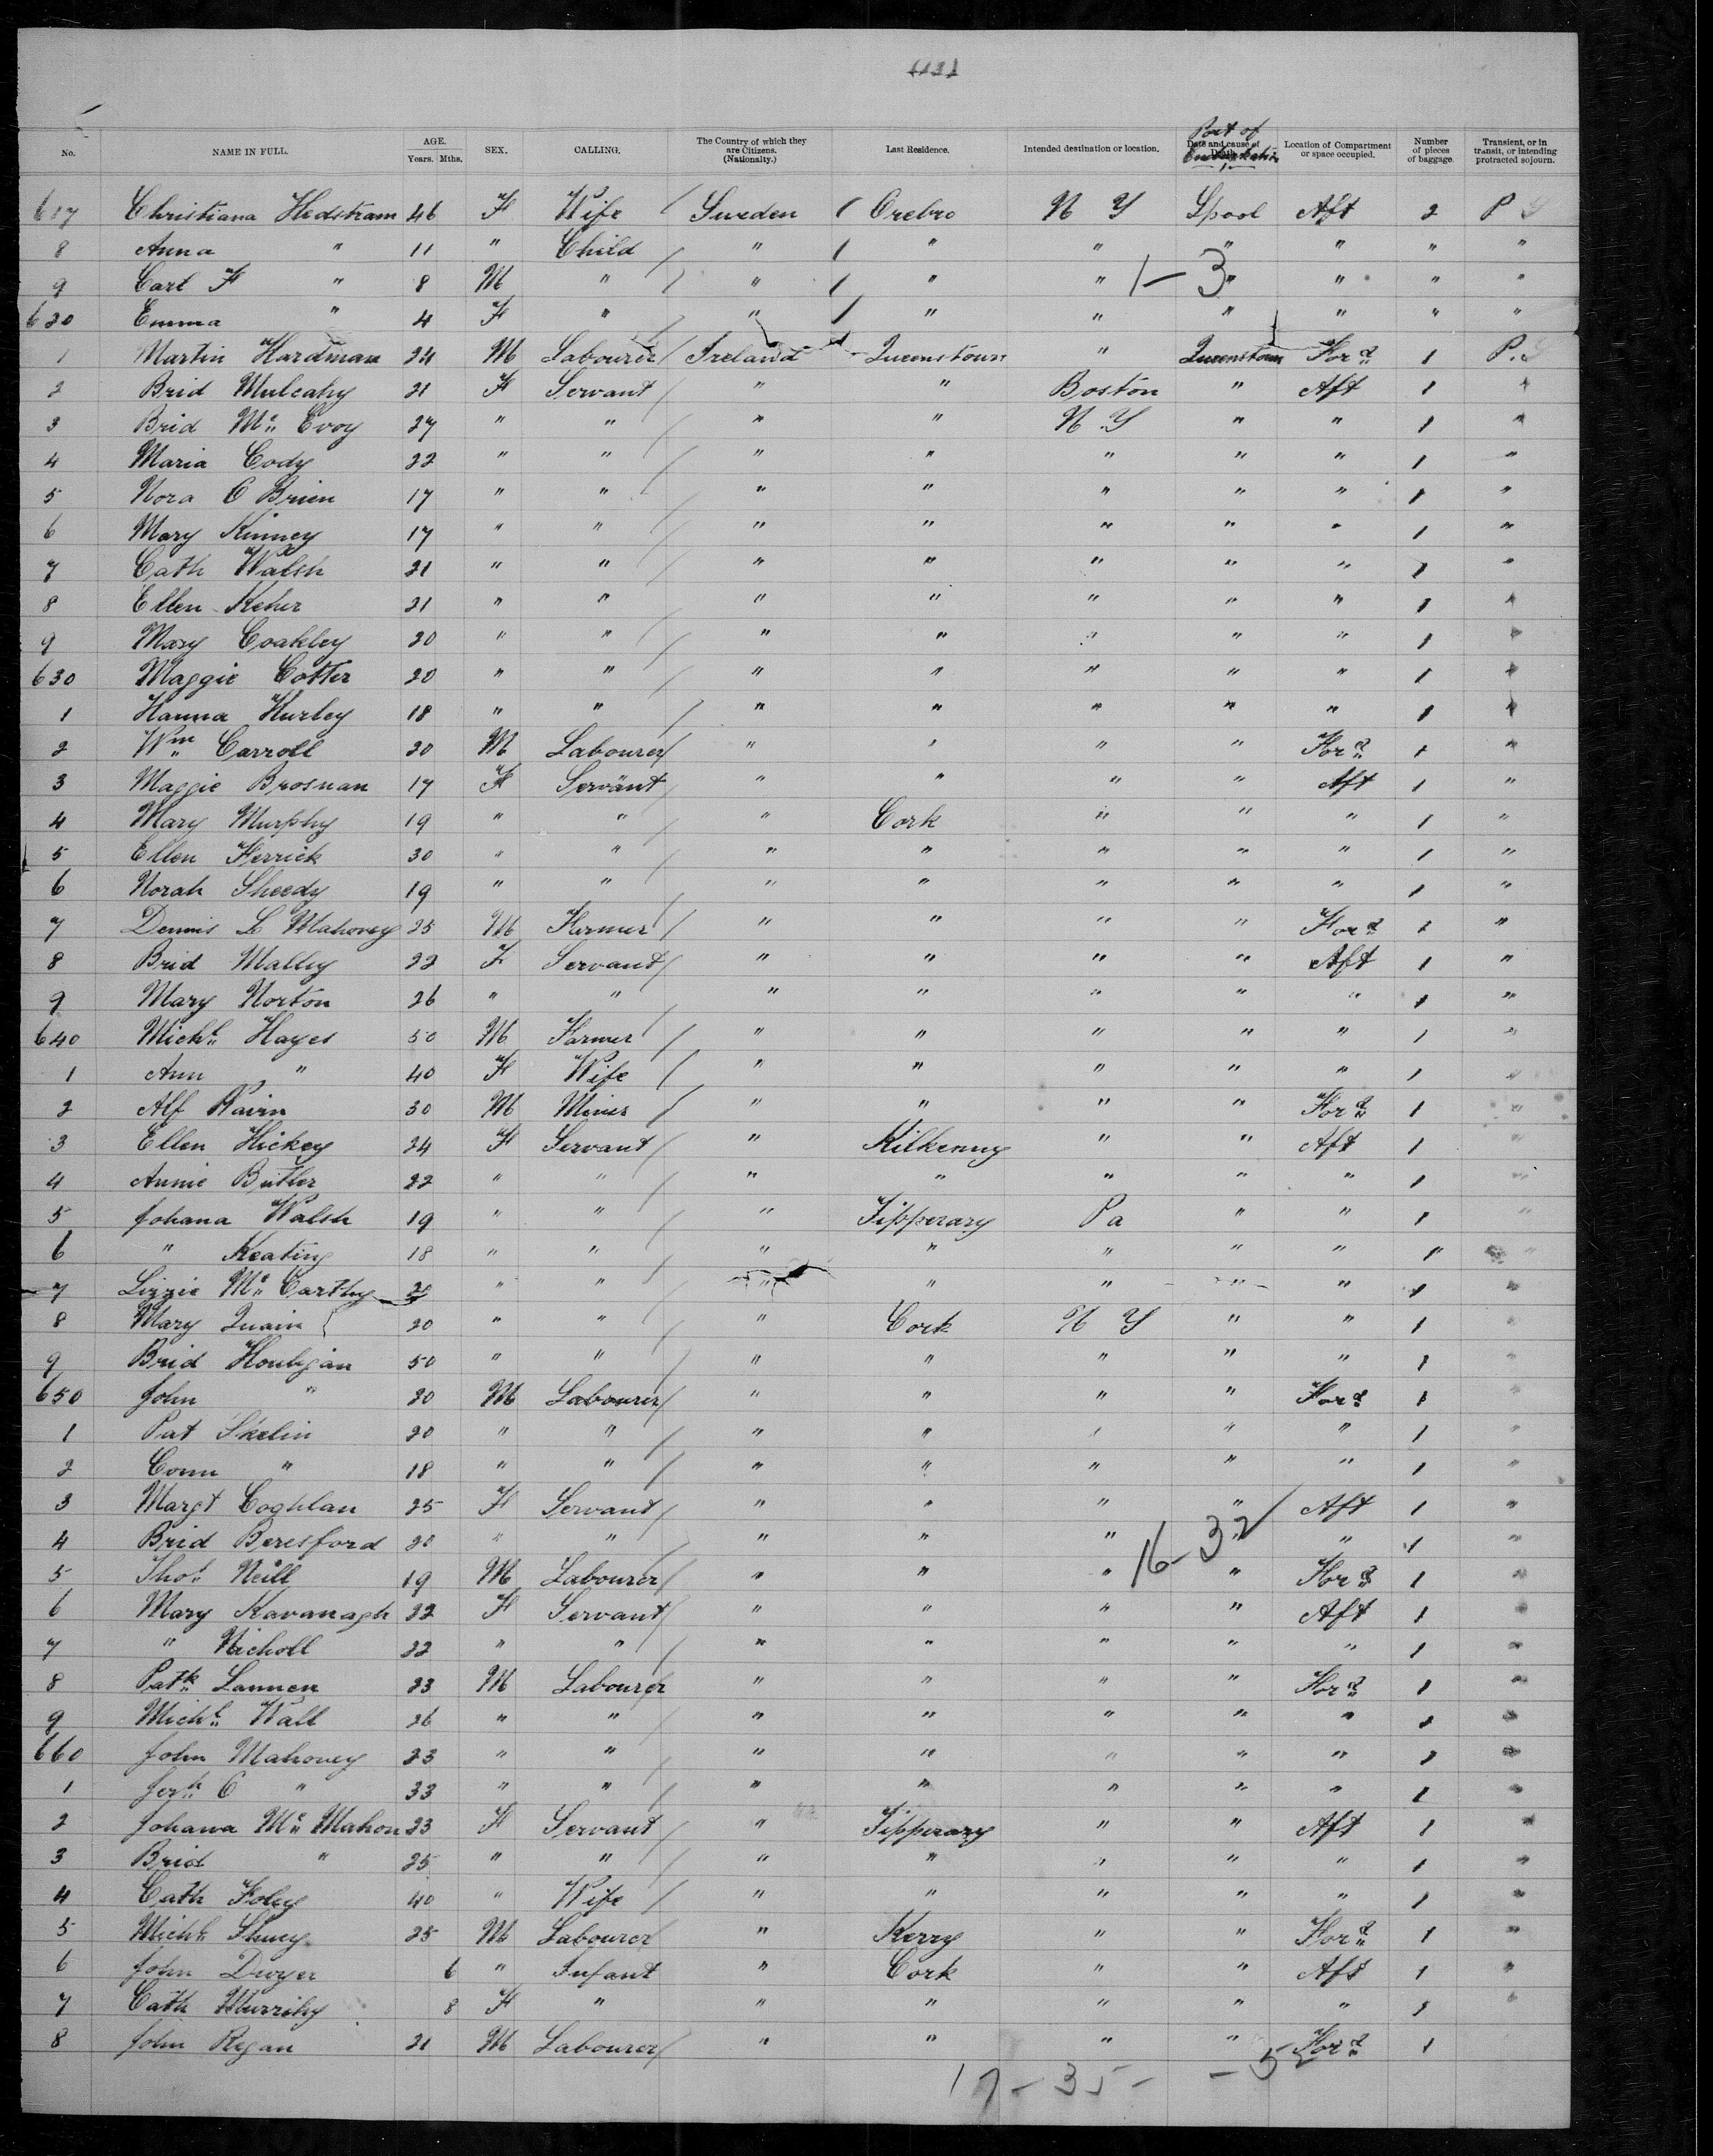 No. NAME IN FULL. AGE. Years. Mths. SEX. CALLING. The Country of which they are Citizens. (Nationality.) Last Residence. Intended destination or location. Date and cause of Death. Port of Embarkation Location of Compartment or space occupied. Number of pieces of baggage. Transient, or in transit, or intending protracted sojourn.
617 Christiana Hedstram 46 F Wife / Sweden / Orebro N Y Lpool Aft 2 P S
8 Anna " 11 " Child / " / " " " " " "
9 Carl F " 8 M " / " / " " " " " "
1 - 3
620 Emma " 4 F " / " / " " " " " "
1 Martin Hardman 24 M Labourer / Ireland Queenstown " Queenstown Ford 1 P. S
2 Brid Mulcahy 21 F Servant / " " Boston " Aft 1 "
3 Brid Mc Evoy 27 " " / " " N. Y " " 1 "
4 Maria Cody 22 " " / " " " " " 1 "
5 Nora O Brien 17 " " / " " " " " 1 "
6 Mary Kinney 17 " " / " " " " " 1 "
7 Cath Walsh 21 " " / " " " " " 1 "
8 Ellen Keher 21 " " / " " " " " 1 "
9 Mary Coakley 20 " " / " " " " " 1 "
630 Maggie Cotter 20 " " / " " " " " 1 "
1 Hanna Hurley 18 " " / " " " " " 1 "
2 Wm Carroll 20 M Labourer / " " " " Ford 1 "
3 Maggie Brosnan 17 F Servant / " " " " Aft 1 "
4 Mary Murphy 19 " " / " Cork " " " 1 "
5 Ellen Ferrick 30 " " / " " " " " 1 "
6 Norah Sheedy 19 " " / " " " " " 1 "
7 Dennis L Mahoney 25 M Farmer / " " " " Ford 1 "
8 Brid Malley 22 F Servant / " " " " Aft 1 "
9 Mary Norton 26 " " / " " " " " 1 "
640 Michl Hayes 50 M Farmer / " " " " " 1 "
1 Ann " 40 F Wife / " " " " " 1 "
2 Alf 30 M Miner / " " " " Ford 1 "
3 Ellen Hickey 24 F Servant / " Kilkenny " " Aft 1 "
4 Annie Butler 22 " " / " " " " " 1 "
5 Johana Walsh 19 " " / " Tipperary Pa " " 1 "
6 " Keating 18 " " / " " " " " 1 "
7 Lizzie Mc Carthy 20 " " / " " " " " 1 "
8 Mary Quain 20 " " / " Cork N Y " " 1 "
9 Brid Houligan 50 " " / " " " " " 1 "
650 John " 20 M Labourer / " " " " Ford 1 "
1 Pat Skelin 20 " " / " " " " " 1 "
2 Conn " 18 " " / " " " " " 1 "
3 Margt Coghlan 25 F Servant / " " " " Aft 1 "
4 Brid Beresford 20 " " / " " " " " 1 "
16 - 32
5 Thos Neill 19 M Labourer / " " " " Ford 1 "
6 Mary Kavanagh 22 F Servant / " " " " Aft 1 "
7 " Nicholl 22 " " / " " " " " 1 "
8 Patk Lannen 23 M Labourer " " " " Ford 1 "
9 Michl Wall 26 " " / " " " " " 1 "
660 John Mahoney 23 " " / " " " " " 1 "
1 Jerh O " 33 " " / " " " " " 1 "
2 Johana Mc Mahon 23 F Servant / " Tipperary " " Aft 1 "
3 Brid " 25 " " / " " " " " 1 "
4 Cath Foley 40 " Wife / " " " " " 1 "
5 Michl 25 M Labourer / " Kerry " " Ford 1 "
6 John Dwyer 6 " Infant " Cork " " Aft 1 "
7 Cath 8 F " " " " " " 1 "
8 John Regan 21 M Labourer / " " " " Ford 1
17 - 35 - - 5